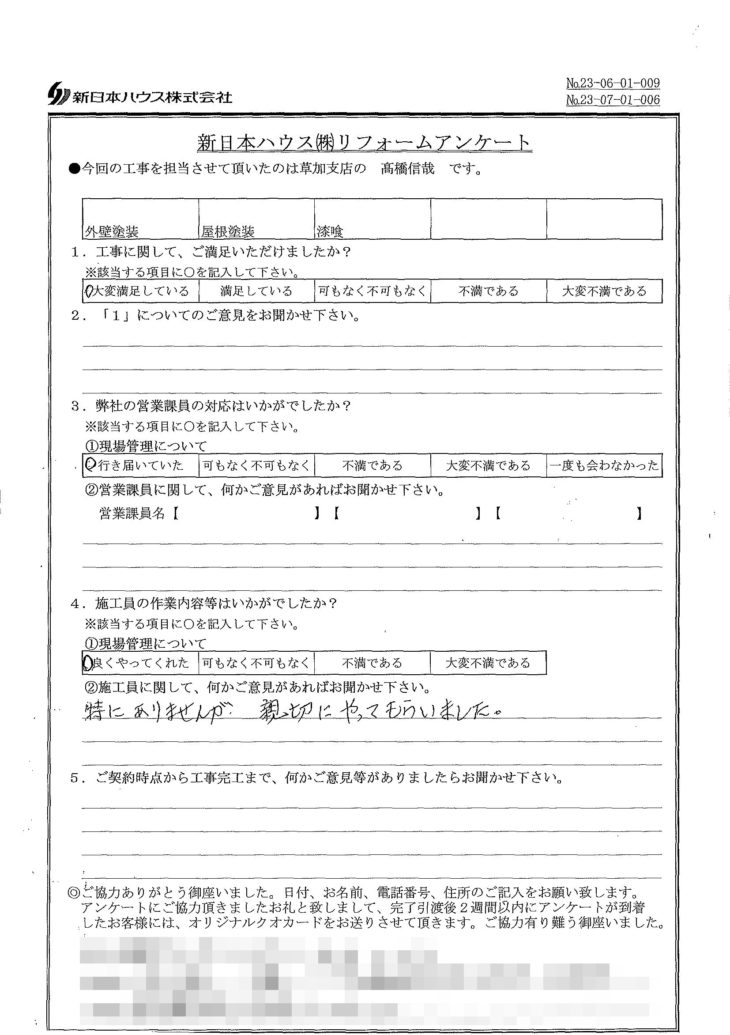 新日本ハウス株式会社
№23-06-01-009
№23-07-01-006
新日本ハウス㈱リフォームアンケート
●今回の工事を担当させて頂いたのは草加支店の 髙橋信哉 です。
外壁塗装 屋根塗装 漆喰
1．工事に関して、ご満足いただけましたか？
※該当する項目に○を記入して下さい。
○大変満足している 満足している 可もなく不可もなく 不満である 大変不満である
2．「1」についてのご意見をお聞かせ下さい。
3．弊社の営業課員の対応はいかがでしたか？
※該当する項目に○を記入して下さい。
①現場管理について
○行き届いていた 可もなく不可もなく 不満である 大変不満である 一度も会わなかった
②営業課員に関して、何かご意見があればお聞かせ下さい。
営業課員名【 】【 】【 】
4．施工員の作業内容等はいかがでしたか？
※該当する項目に○を記入して下さい。
①現場管理について
○良くやってくれた 可もなく不可もなく 不満である 大変不満である
②施工員に関して、何かご意見があればお聞かせ下さい。
特にありませんが 親切にやってもらいました。
5．ご契約時点から工事完工まで、何かご意見等がありましたらお聞かせ下さい。
◎ご協力ありがとう御座いました。日付、お名前、電話番号、住所のご記入をお願い致します。
アンケートにご協力頂きましたお礼と致しまして、完了引渡後2週間以内にアンケートが到着
したお客様には、オリジナルクオカードをお送りさせて頂きます。ご協力有り難う御座いました。